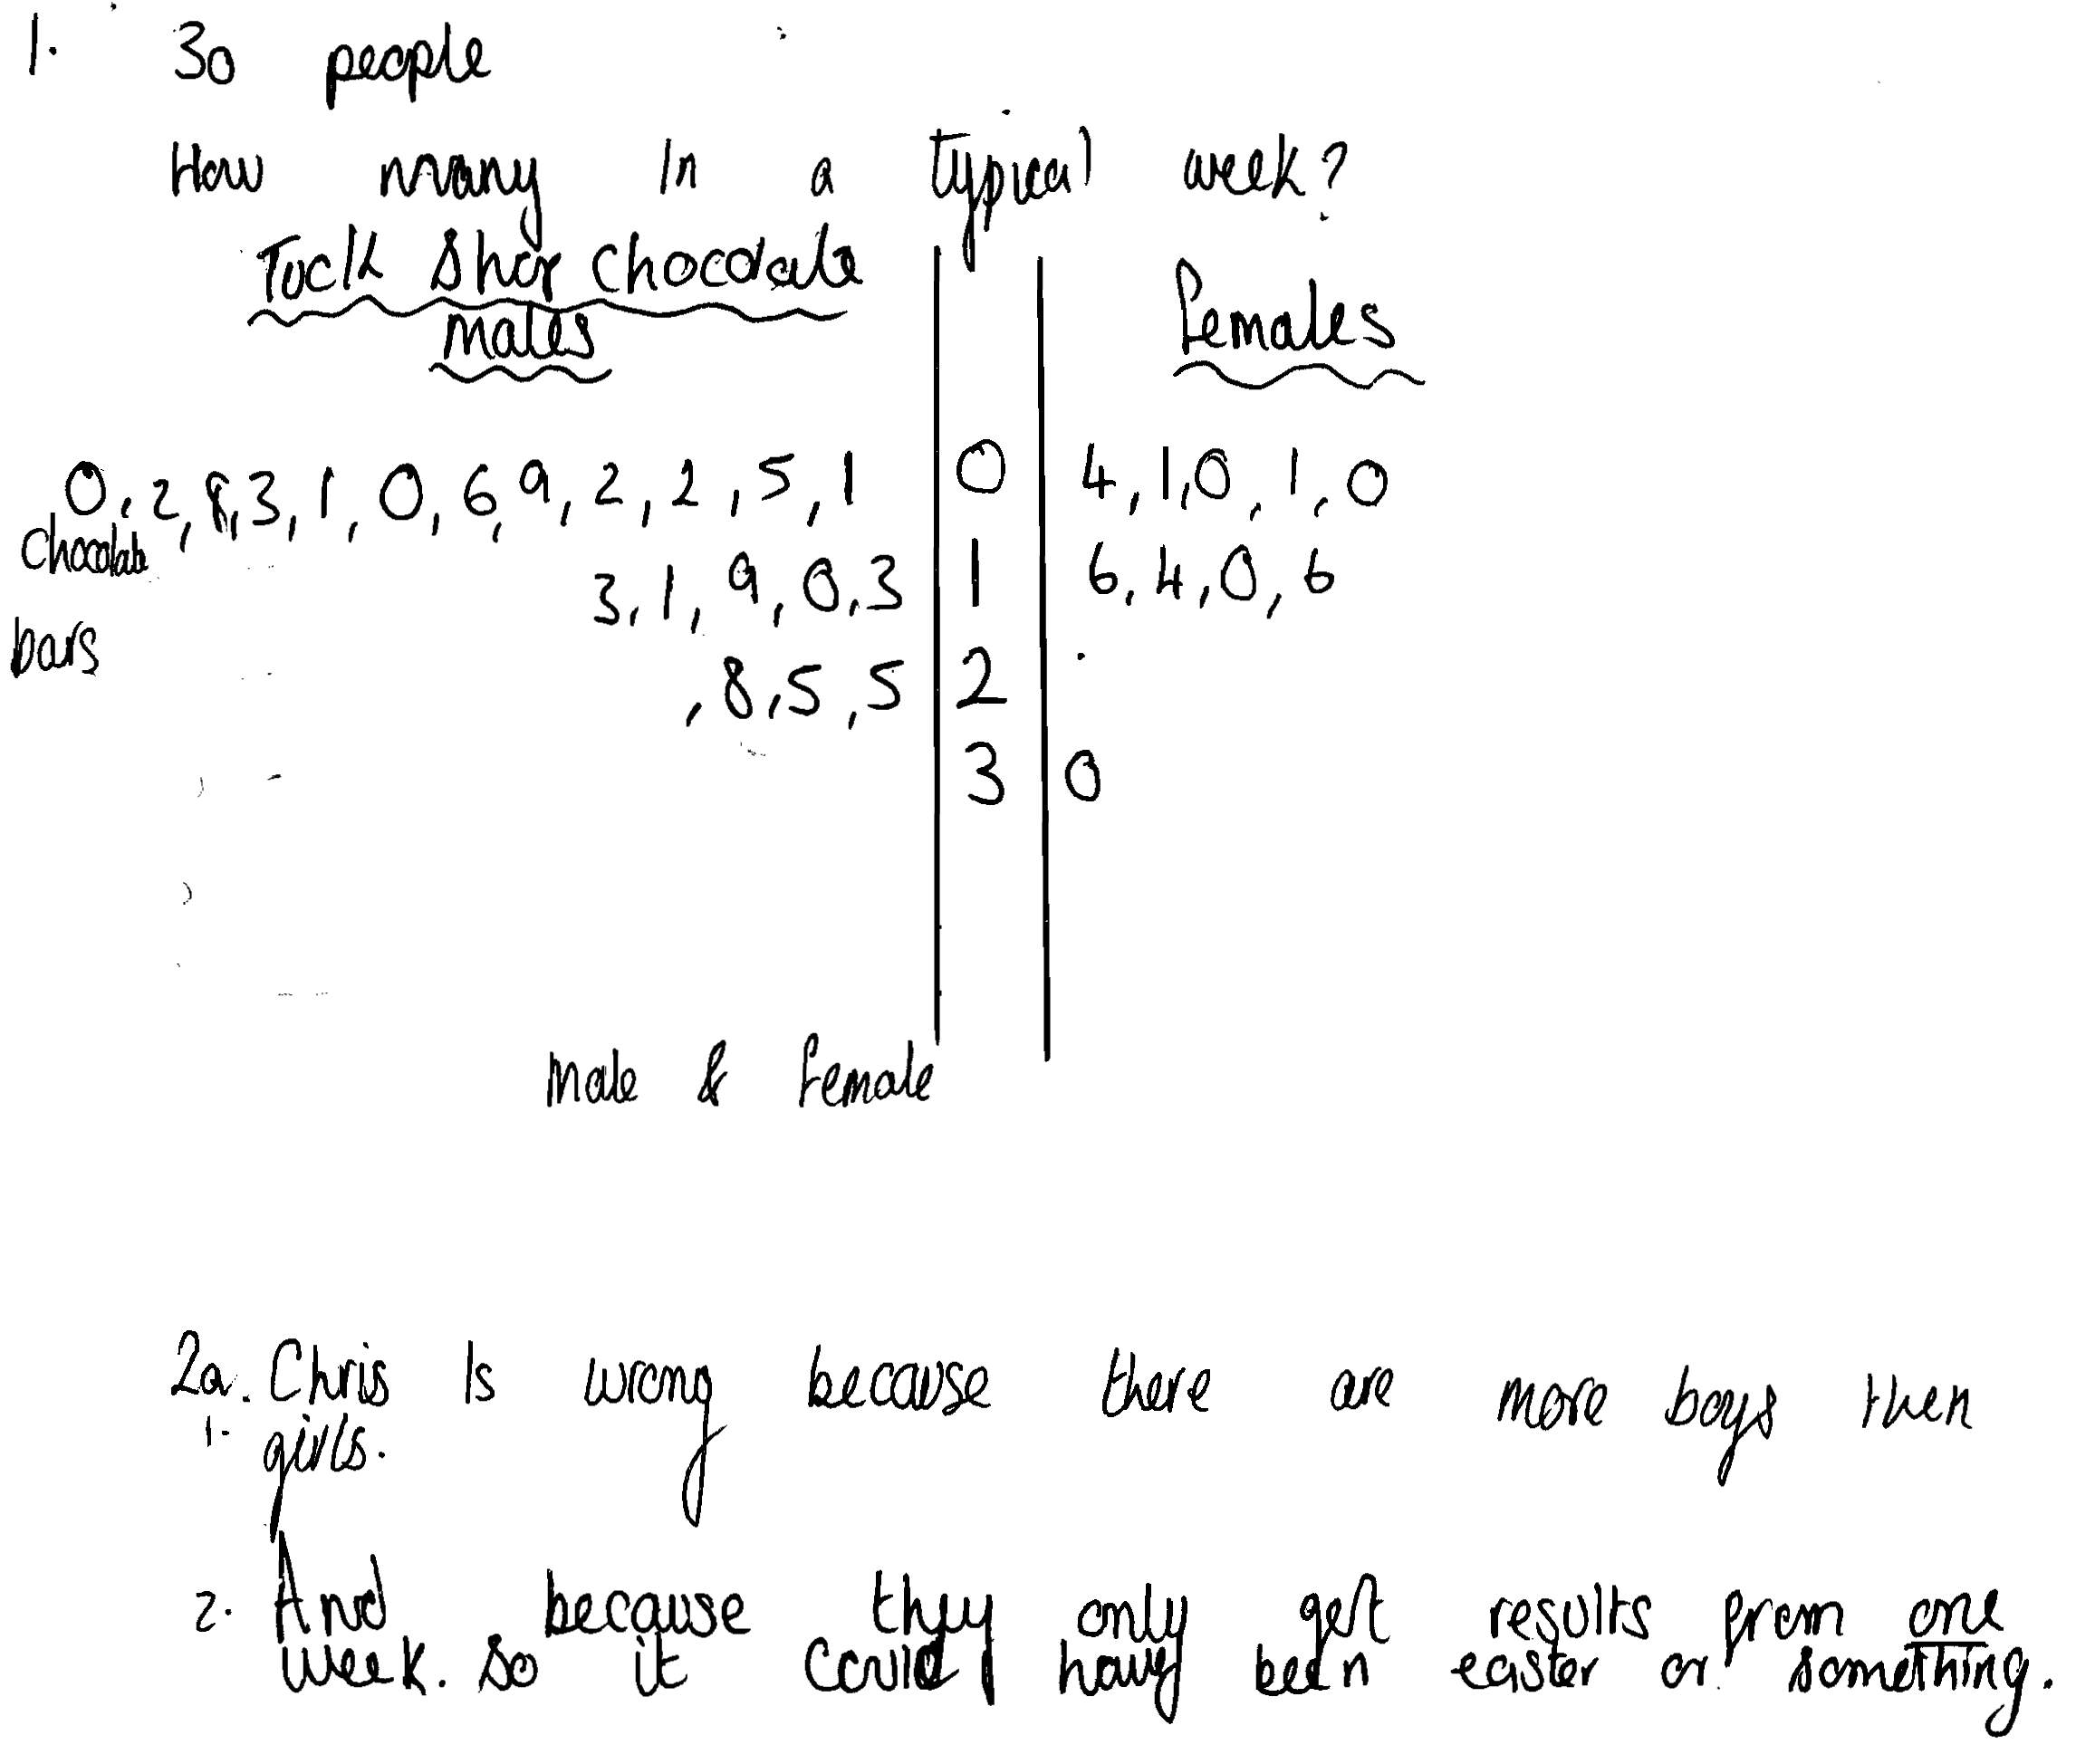 1. 30 people
How many in a typical week?
Tuck Shop Chocolate
Males
Females
0, 2, 8, 3, 1, 0, 6, 9, 2, 2, 5, 1 | 0 | 4, 1, 0, 1, 0
Chocolate
3, 1, 9, 0, 3 | 1 | 6, 4, 0, 6
bars
, 8, 5, 5 | 2
3 | 0
Male & Female
2a. Chris is wrong because there are more boys then
1. girls.
2. And because they only get results from one
week. So it could have been easter or something.